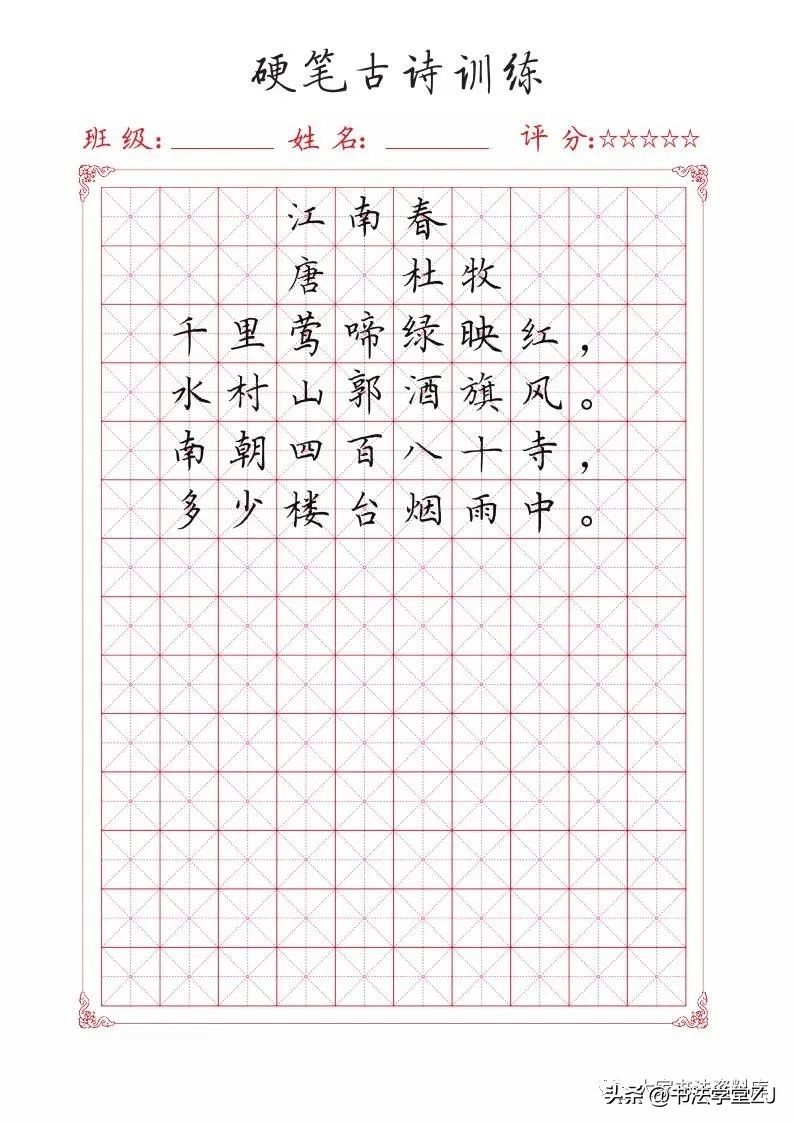 硬笔古诗训练
班级: 姓名: 评分:☆☆☆☆☆
江南春
唐 杜牧
千里莺啼绿映红，
水村山郭酒旗风。
南朝四百八十寺，
多少楼台烟雨中。
头条@书法学堂ZJ